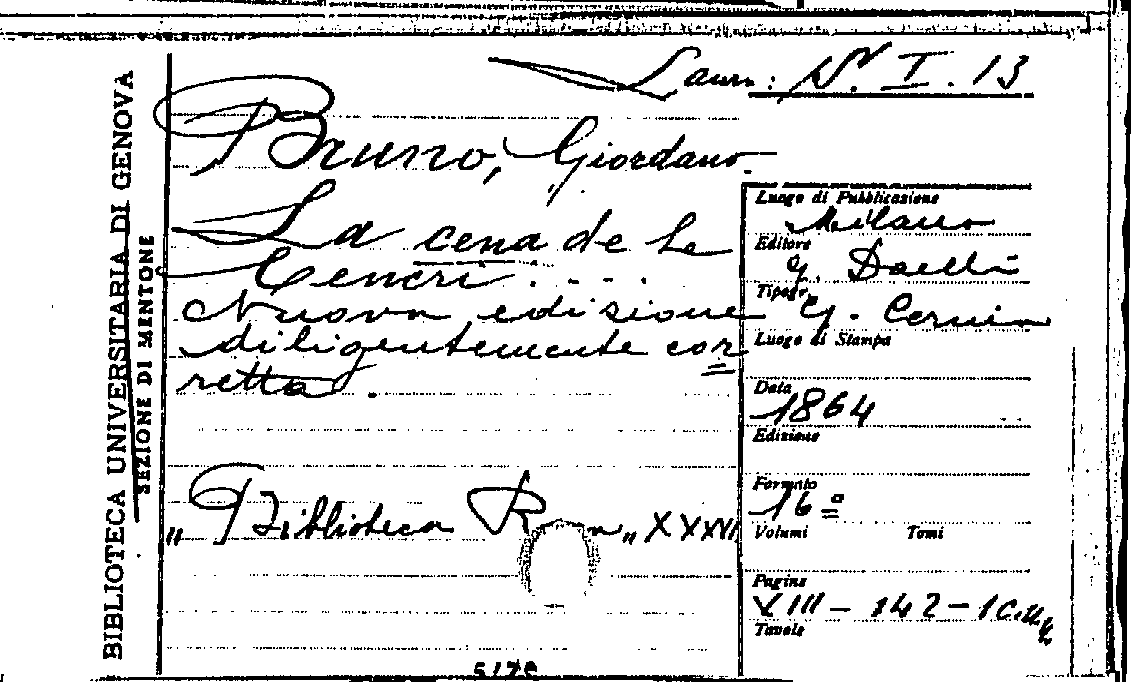 BIBLIOTECA UNIVERSITARIA DI GENOVA
SEZIONE DI MENTONE
I. 13
Bruno, Giordano
La cena de le
Ceneri . . . .
Nuova edizione
diligentemente cor
retta.
"Biblioteca R "XXXVI
Luogo di Pubblicazione
Milano
Editore
G. Daelli
Tipogr.
G.
Luogo di Stampa
Data
1864
Edizione
Formato
16º
Volumi Tomi
Pagine
XIII - 142 - 1
Tavole